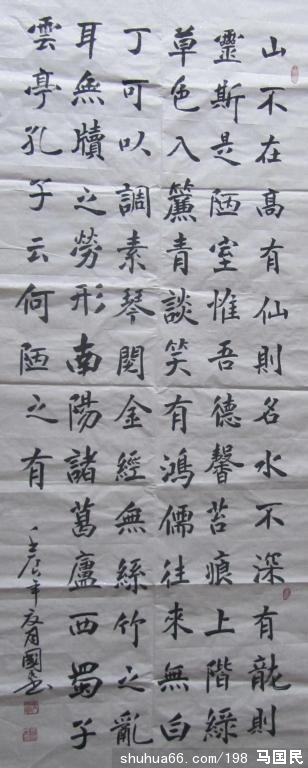 山不在高有仙則名水不深有龍則
靈斯是陋室惟吾德馨苔痕上階綠
草色入簾青談笑有鴻儒往來無白
丁可以調素琴閱金經無絲竹之亂
耳無牘之勞形南陽諸葛廬西蜀子
雲亭孔子云何陋之有
壬辰年夏月國
shuhua66.com/198 马国民